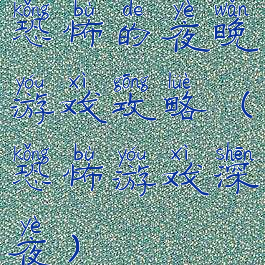 kǒng bù de yè wǎn
恐怖的夜晚
yóu xì gōng lüè
游戏攻略（
kǒng bù yóu xì shēn
恐怖游戏深
yè
夜）